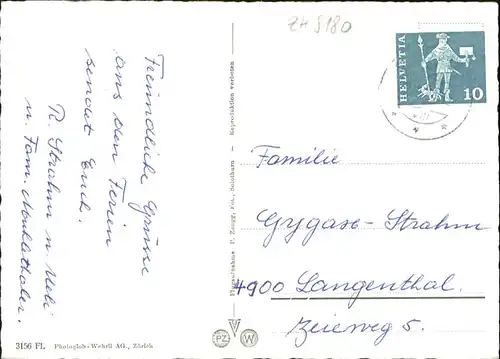 ZH 5180
HELVETIA
10
Freundliche Grüsse
aus den Ferien
sendet Euch.
R. Strahm u. Ueli
u. Fam.
Familie
Gygax-Strahm
4900 Langenthal.
5.
Flugaufnahme P. Zaugg, Fot., Solothurn — Reproduktion verboten
PZ
W
3156 Fl. Photoglob-Wehrli AG., Zürich